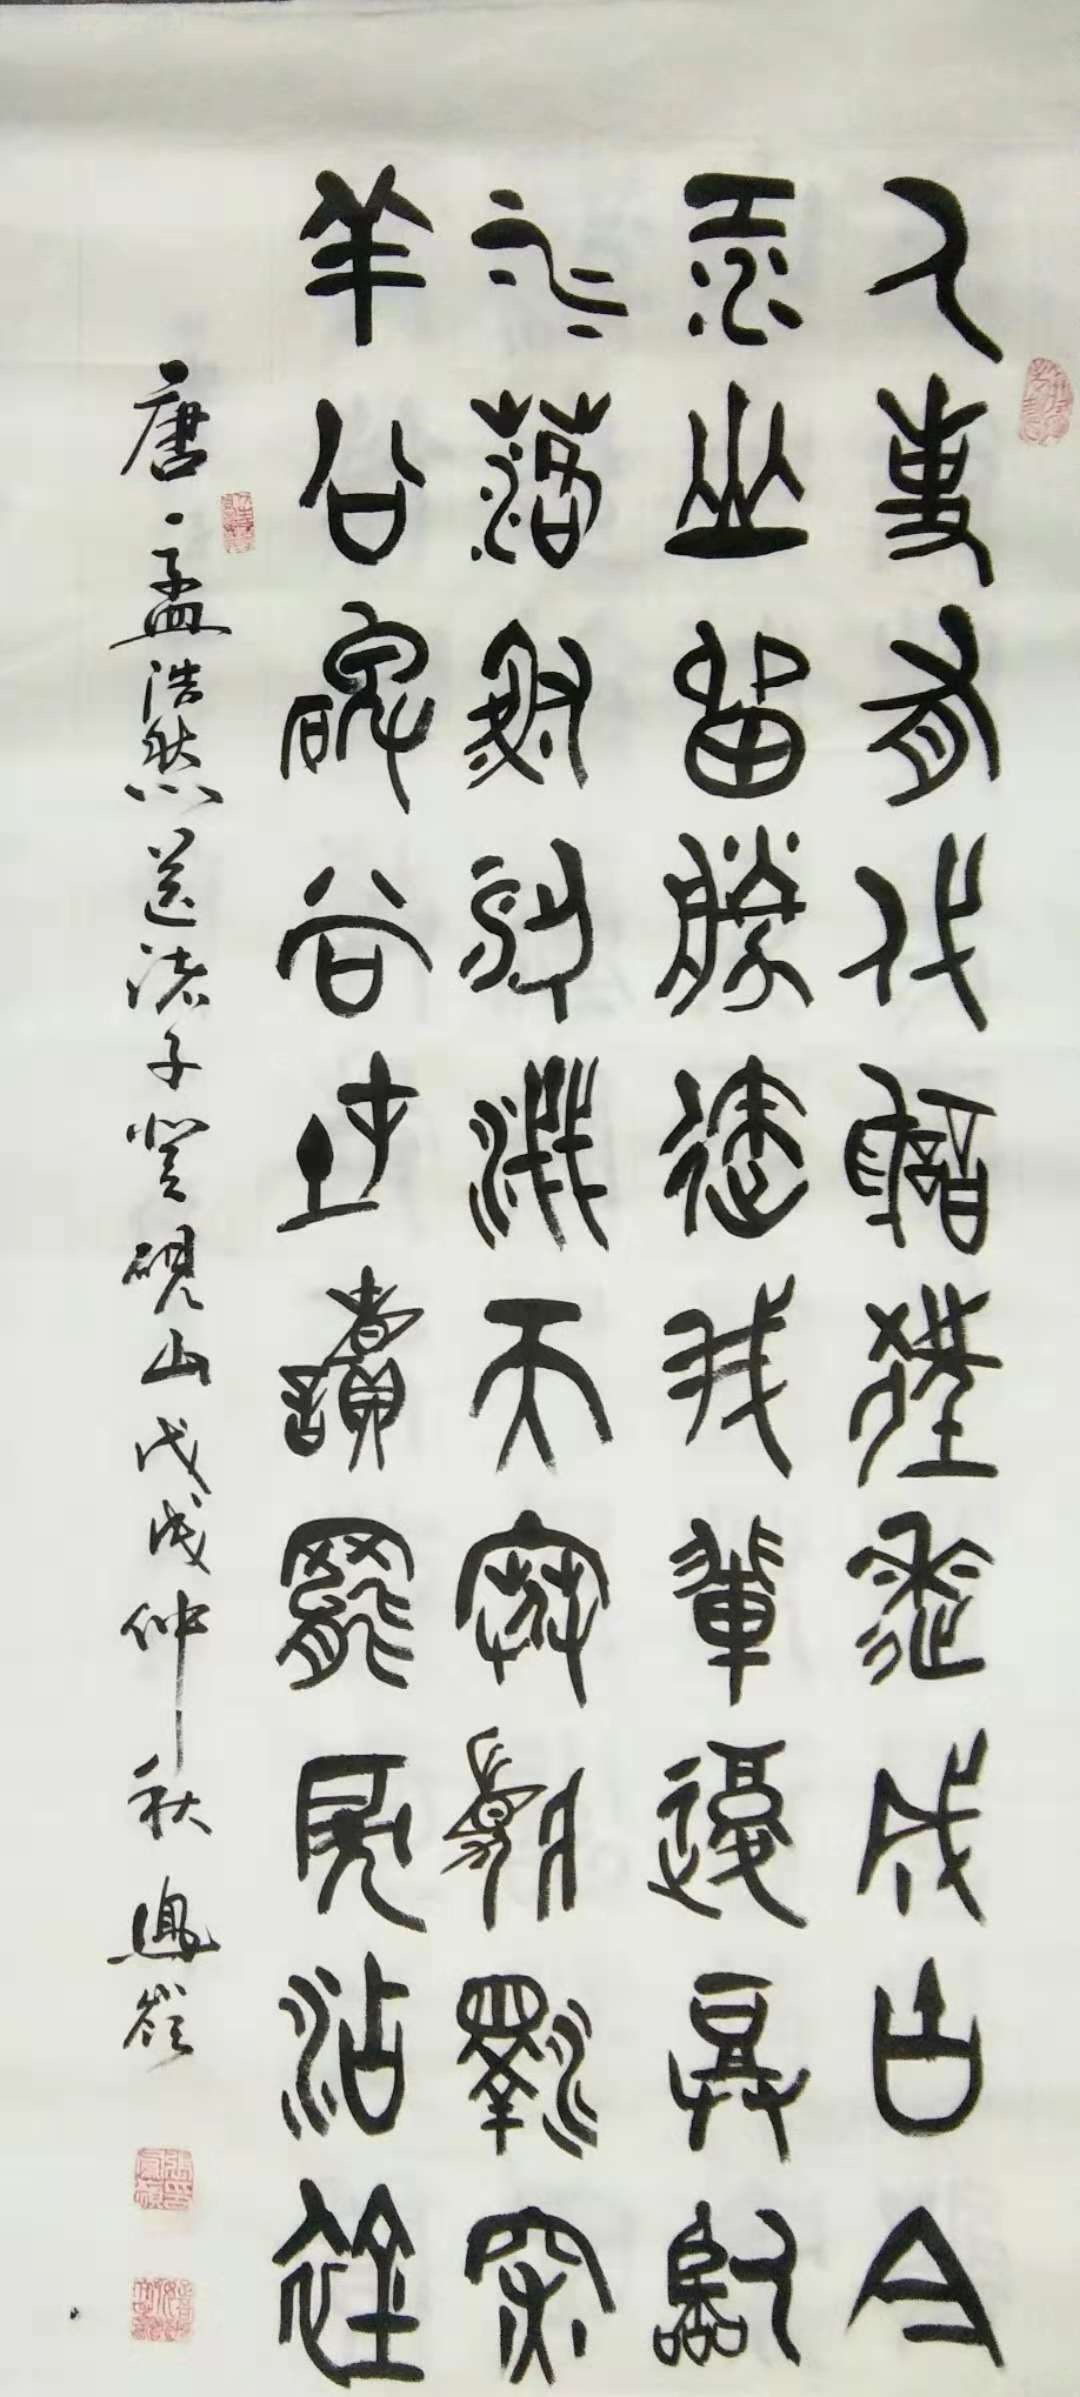 人事有代謝往來成古今
江山留勝迹我輩復登臨
水落魚梁淺天寒夢澤深
羊公碑尚在讀罷泪沾襟
唐孟浩然送诸子登硯山戊戌仲秋嶺